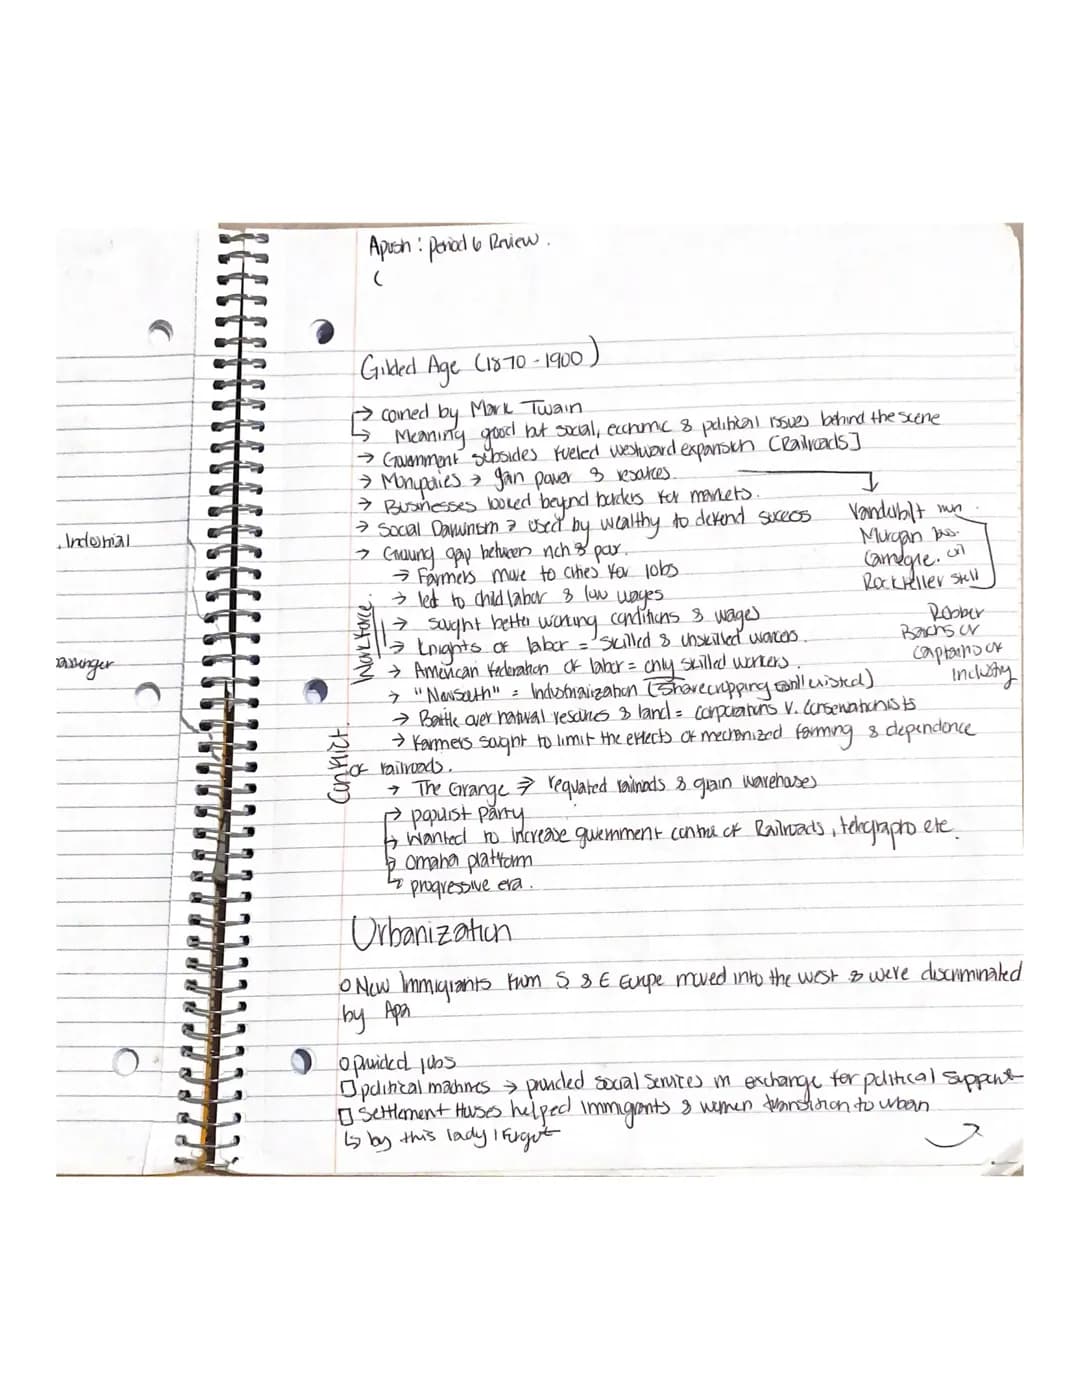 Apush : Period 6 Review .
(
Gilded Age (1870 - 1900)
→ coined by Mark Twain
↳ Meaning good but social, economic & political issues behind the scene
→ Government subsides fueled westward expansion [Railroads]
→ Monopolies → gain power & resources.
→ Businesses looked beyond borders for markets.
→ Social Darwinism → used by wealthy to defend success
→ Growing gap between rich & poor.
→ Farmers move to cities for jobs
→ led to child labor & low wages
→ sought better working conditions & wages
→ knights of labor = skilled & unskilled workers.
→ American federation of labor = only skilled workers.
→ "New South" = Industrialization (Sharecropping still existed)
→ Battle over natural resources & land = corporations v. conservationists
→ farmers sought to limit the effects of mechanized farming & dependence
of railroads.
→ The Grange → regulated railroads & grain warehouses
→ populist party
→ Wanted to increase government control of Railroads, telegraphs etc.
→ Omaha platform
↳ progressive era.
Work force.
Conflict.
Vanderbilt
Morgan
Carnegie. oil
Rockfeller stell
Robber
Barons or
captains of
Industry
Urbanization
o New Immigrants from S & E Europe moved into the west & were discriminated
by Apa
o provided jobs
□ political machines → provided social services in exchange for political support
□ Settlement Houses helped immigrants & women transition to urban
↳ by this lady I forgot
. Industrial
passenger